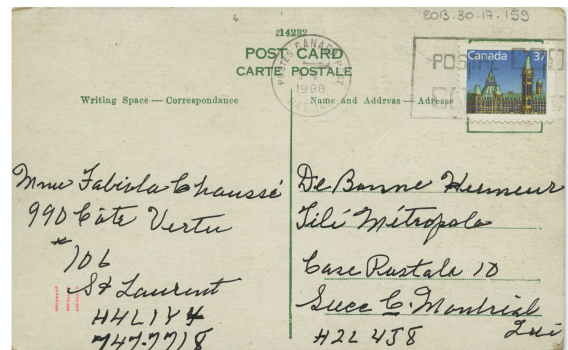 2013.30.17.159
214232
POST CARD
CARTE POSTALE
POSTES CANADA POST
1988
Canada 37
Writing Space — Correspondance
Name and Address — Adresse
Mme Fabiola Chaussé
990 Côte Vertu
# 106
St Laurent
H4L 1Y4
747-7718
De Bonne Humeur
Télé Métropole
Case Postale 10
Succ C. Montréal
Qué
H2L 4J8